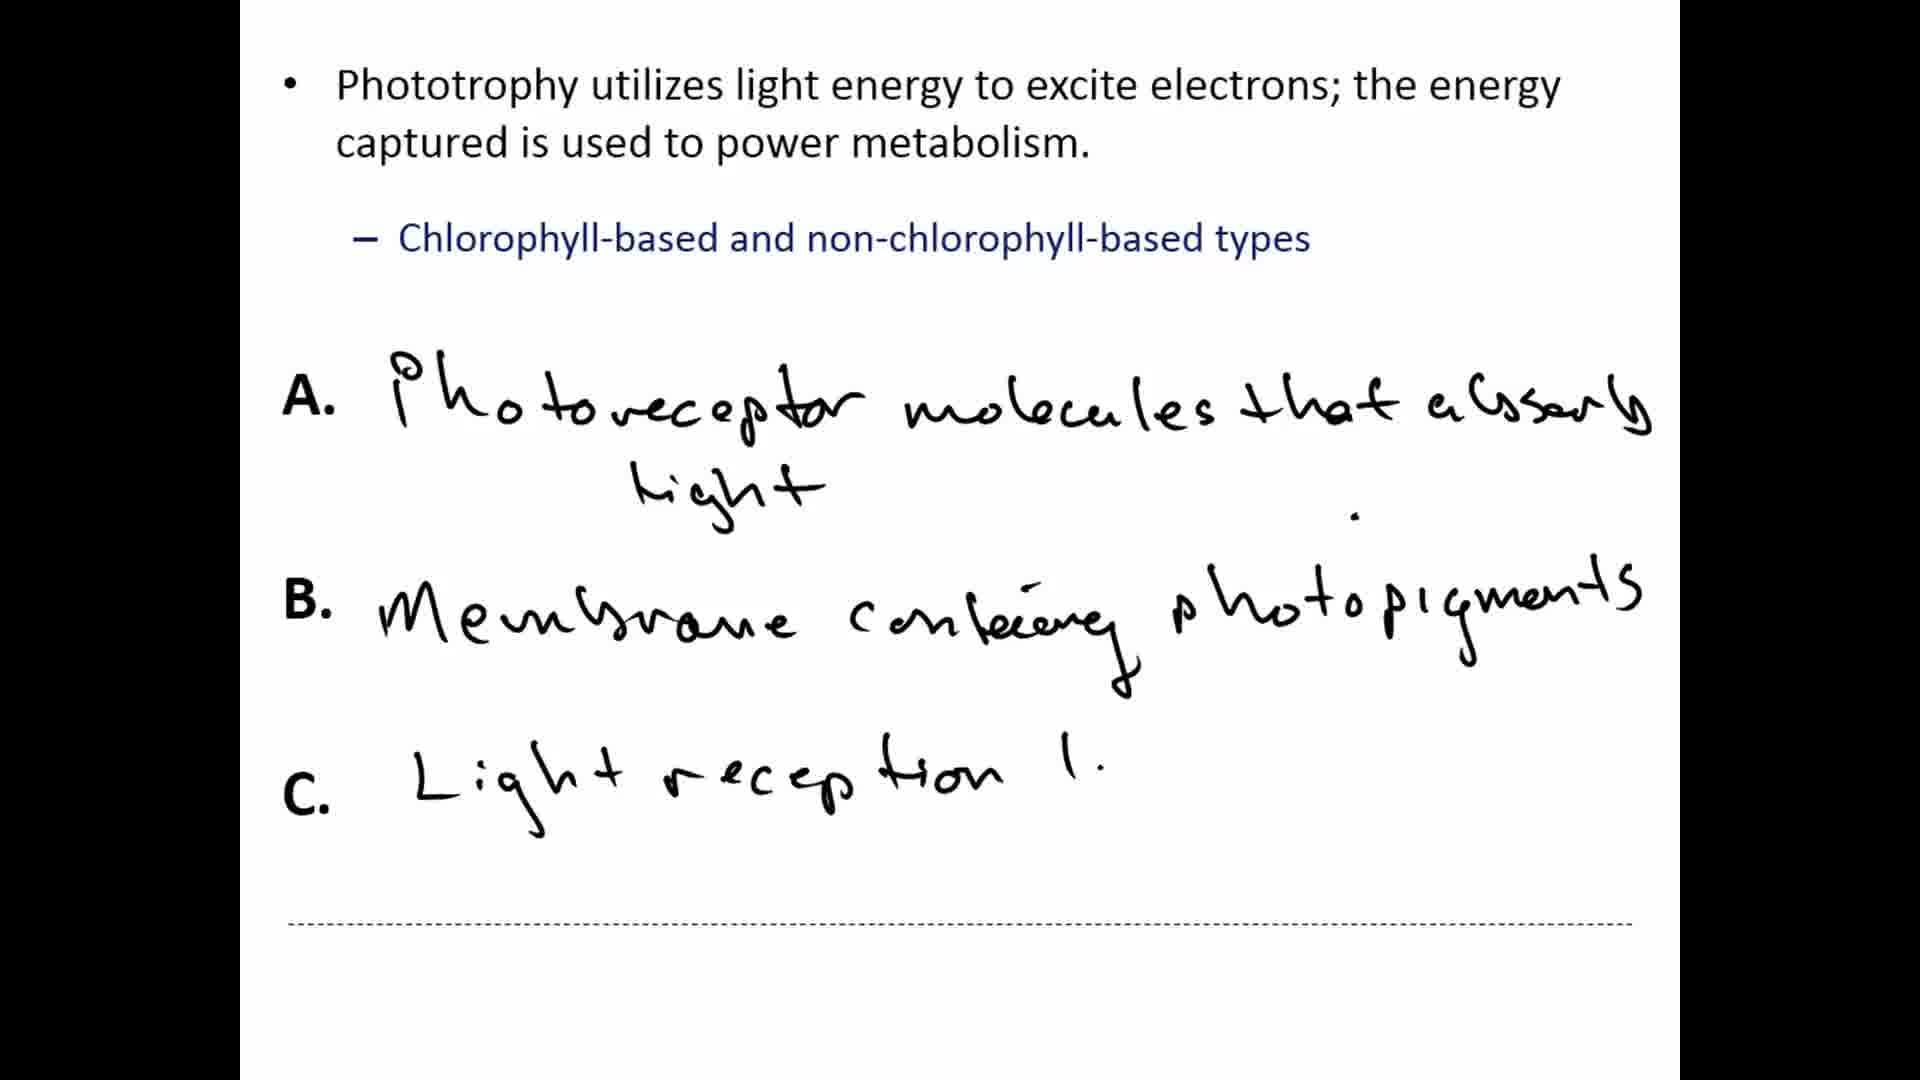 • Phototrophy utilizes light energy to excite electrons; the energy
captured is used to power metabolism.
– Chlorophyll-based and non-chlorophyll-based types
A. Photoreceptor molecules that absorb
light
B. Membrane containing photopigments
C. Light reception